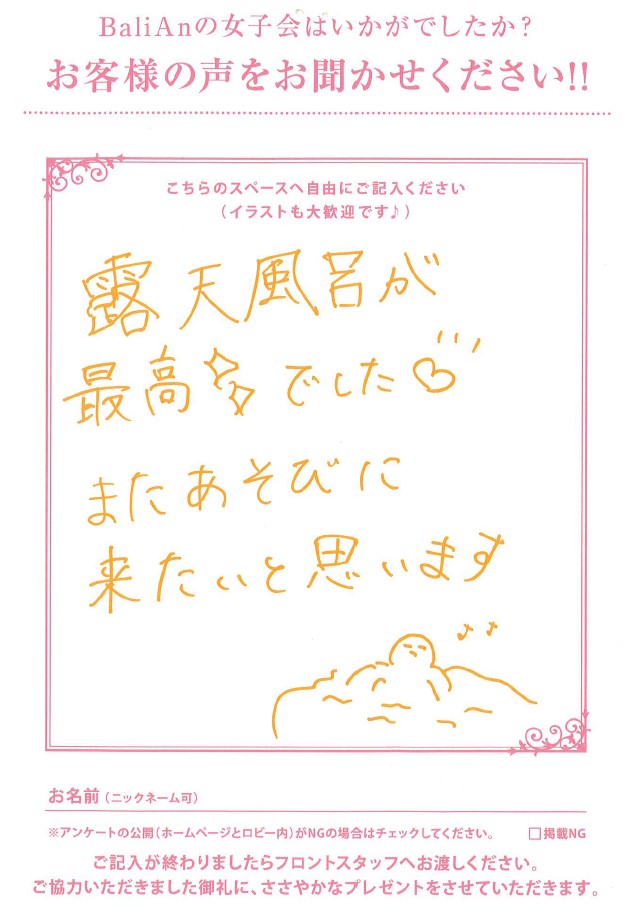 BaliAnの女子会はいかがでしたか?
お客様の声をお聞かせください!!
こちらのスペースへ自由にご記入ください
(イラストも大歓迎です♪)
露天風呂が
最高でした♡
またあそびに
来たいと思います
♪♪
お名前(ニックネーム可)
※アンケートの公開(ホームページとロビー内)がNGの場合はチェックしてください。 □掲載NG
ご記入が終わりましたらフロントスタッフへお渡しください。
ご協力いただきました御礼に、ささやかなプレゼントをさせていただきます。